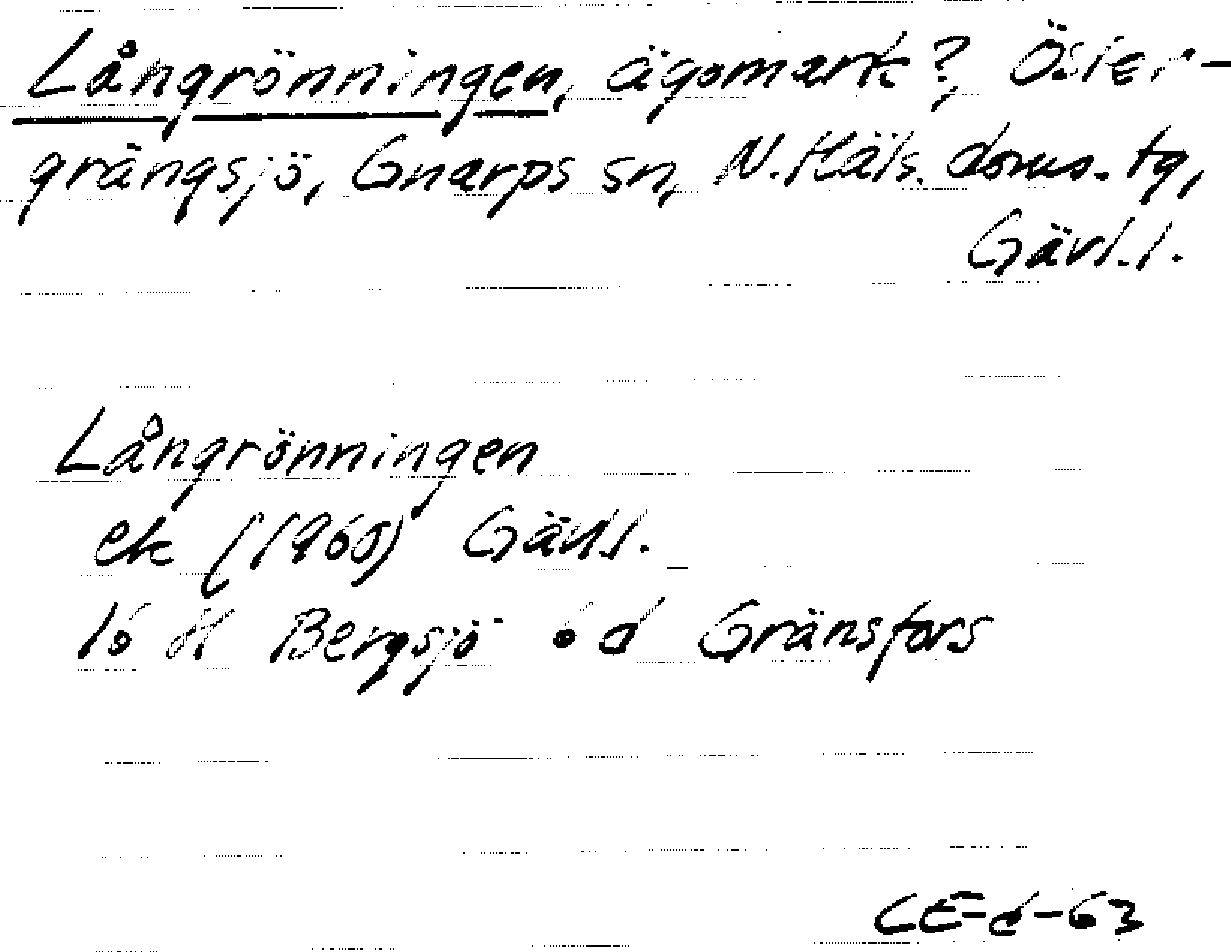 Långrönningen, ägomark?, Öster-
grängsjö, Gnarps sn, N. Häls. doms. tg,
Gävl. l.
Långrönningen
ek (1960) Gävl l.
16 H Bergsjö 6 d Gränsfors
CE-d-63